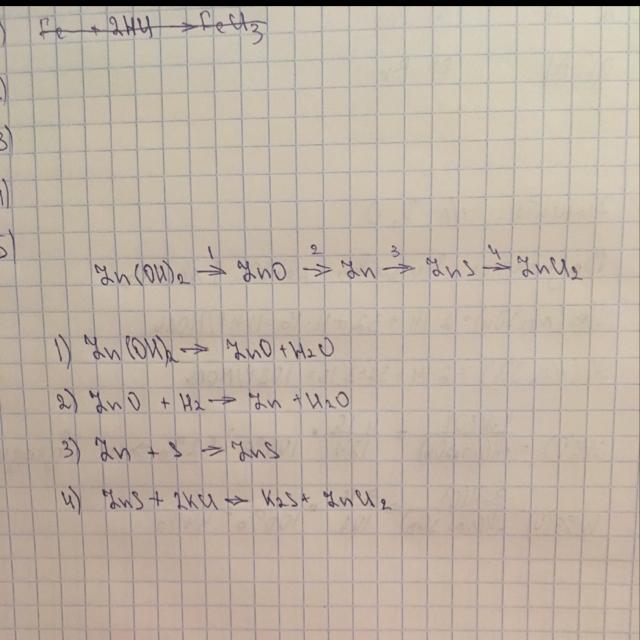 ) Fe + 2HCl → FeCl3
)
3)
)
5)
1 2 3 4
Zn(OH)2 → ZnO → Zn → ZnS → ZnCl2
1) Zn(OH)2 → ZnO + H2O
2) ZnO + H2 → Zn + H2O
3) Zn + S → ZnS
4) ZnS + 2KCl → K2S + ZnCl2